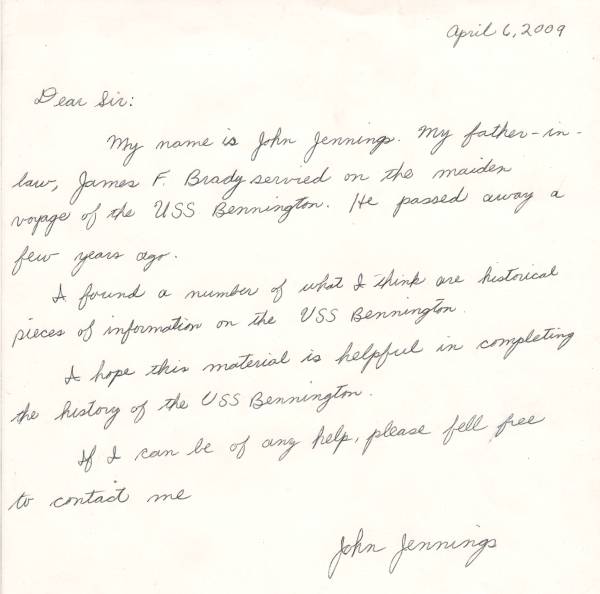 April 6, 2009
Dear Sir:
My name is John Jennings. My father-in-
law, James F. Brady servied on the maiden
voyage of the USS Bennington. He passed away a
few years ago.
I found a number of what I think are historical
pieces of information on the USS Bennington.
I hope this material is helpful in completing
the history of the USS Bennington.
If I can be of any help, please fell free
to contact me
John Jennings